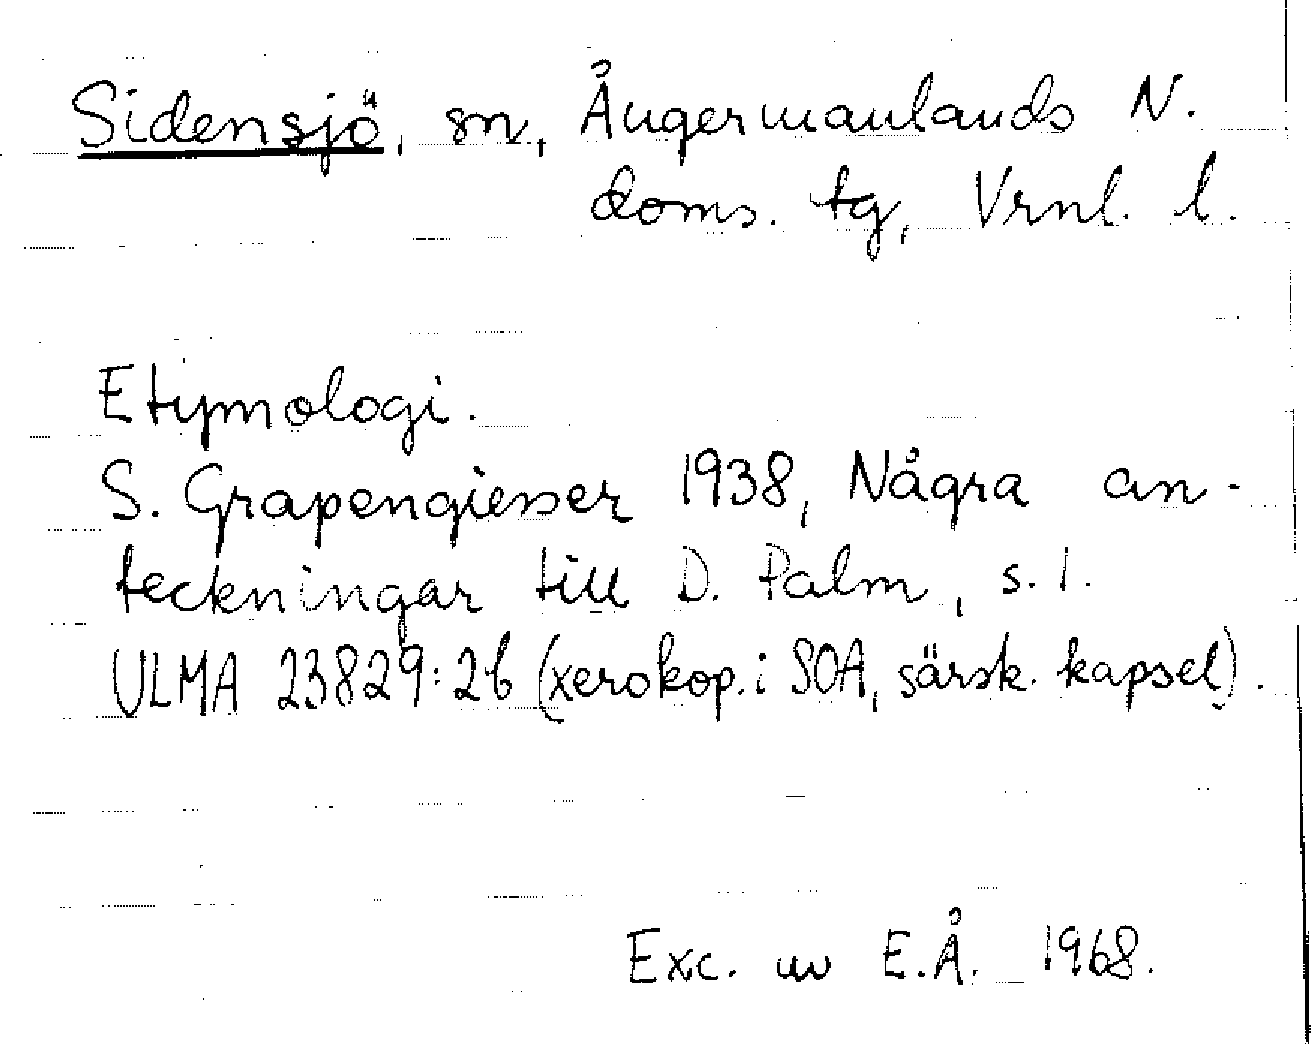 Sidensjö, sn, Ångermanlands N.
doms. tg, Vrnl. l.
Etymologi.
S. Grapengiesser 1938, Några an-
teckningar till D. Palm, s. 1.
ULMA 23829:26 (xerokop. i SOA, särsk. kapsel).
Exc. av E.Å. 1968.